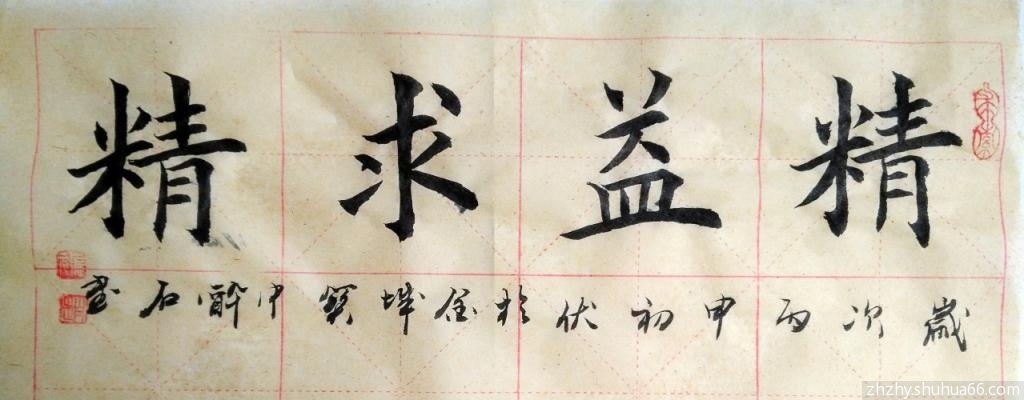 精益求精
嵗次丙申初伏於金城 中醉石書
zhzhy.shuhua66.com